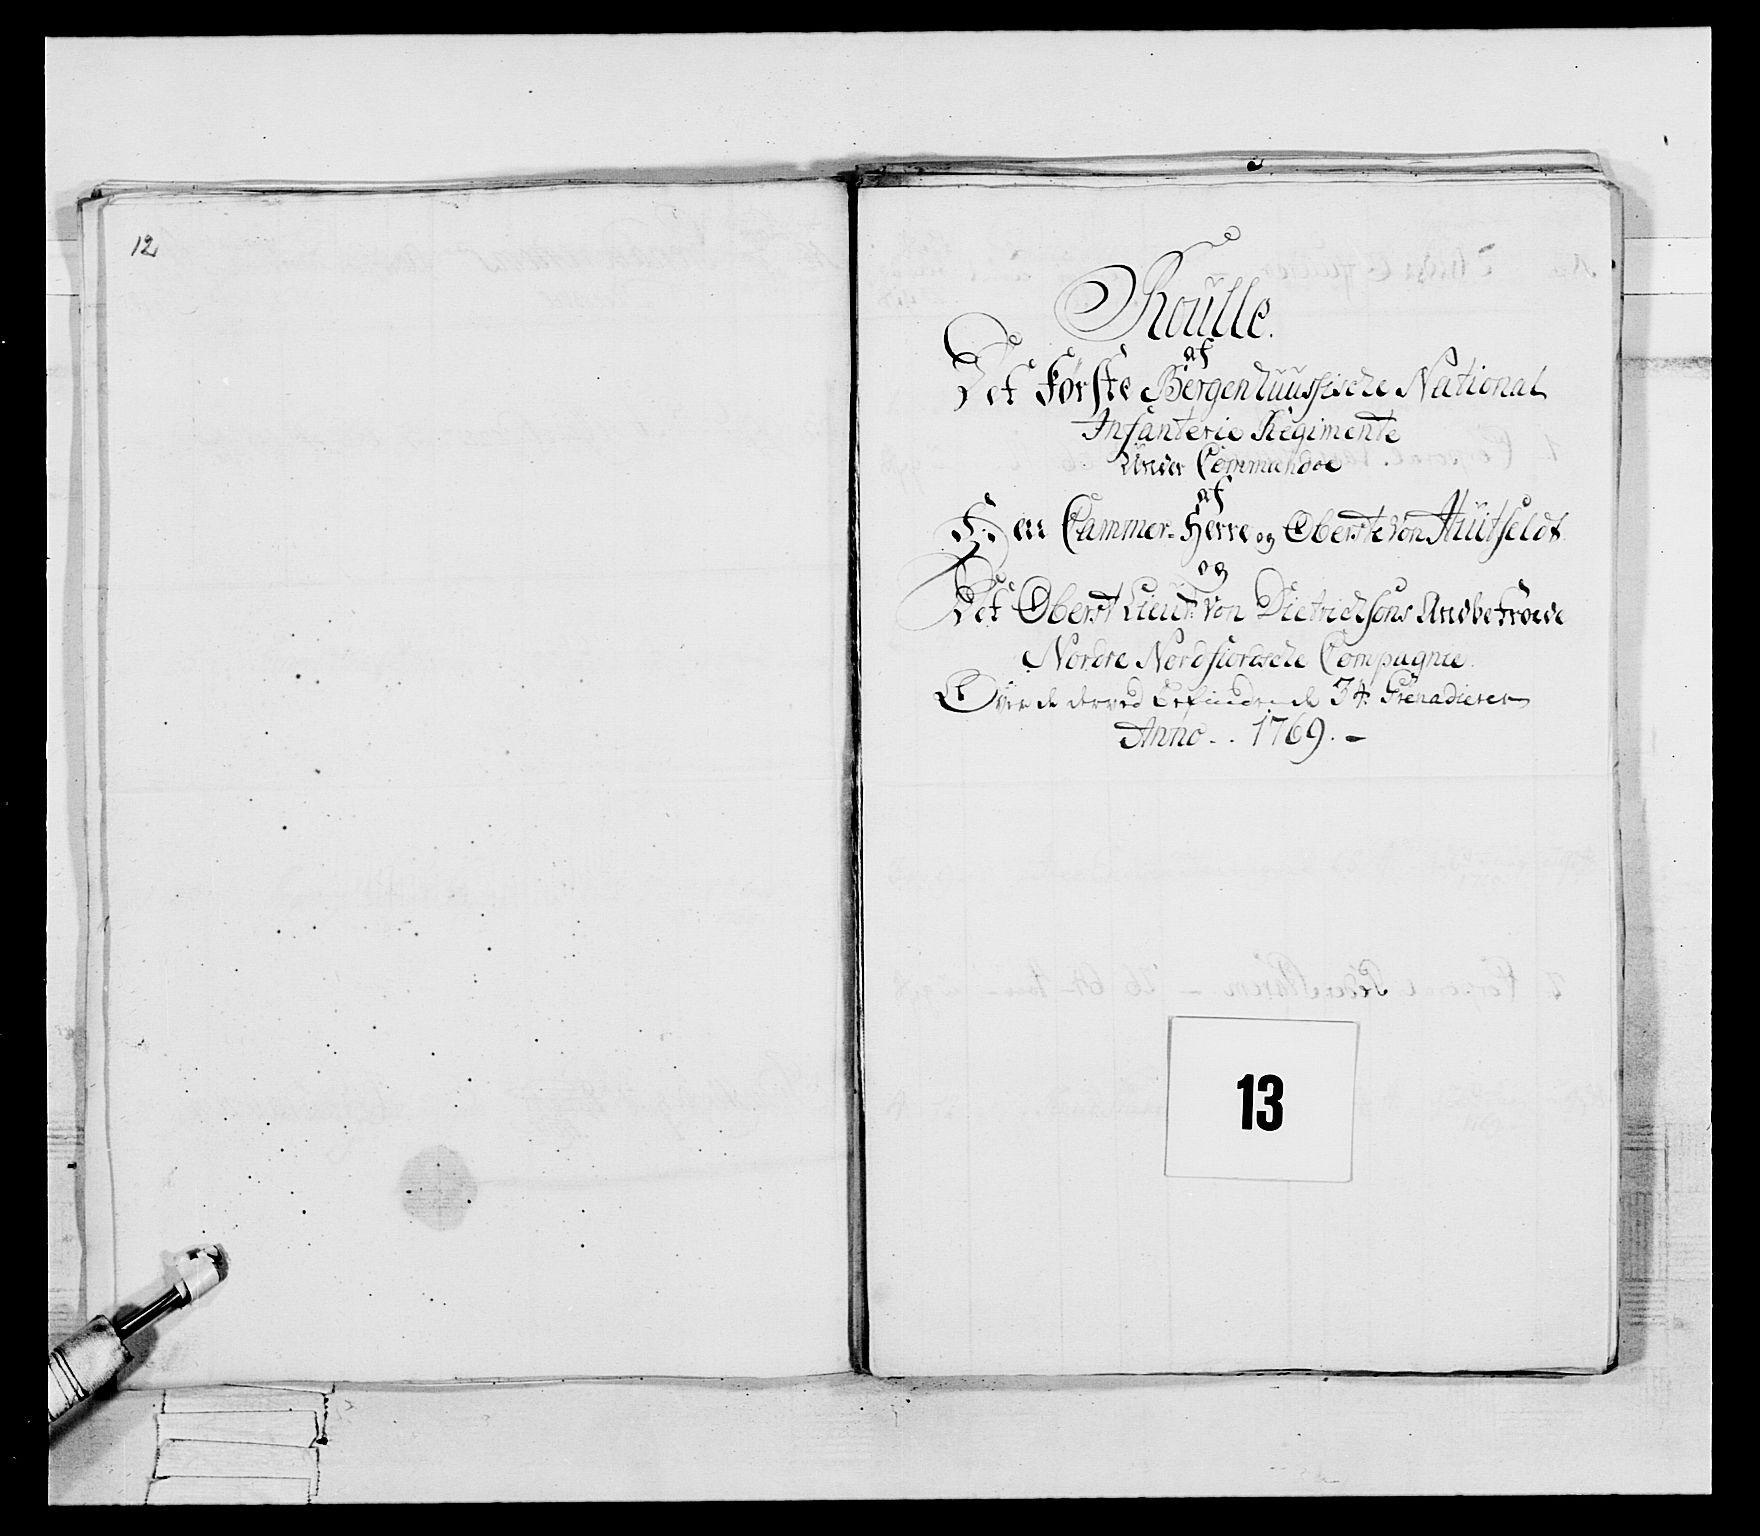 12
Roulle.
af
Det Første Bergenhuussische National
Infanterie Regimente
Under Commandoe
af
Hr. Cammer-Herre og Oberste von Hüitfeldt
og
Det Oberst Lieut: von Dietrichsons Anbetroede
Nordre Nordfiordsche Compagnie.
Over de derved befindende 34 Grenadierer
Anno.. 1769.-
13